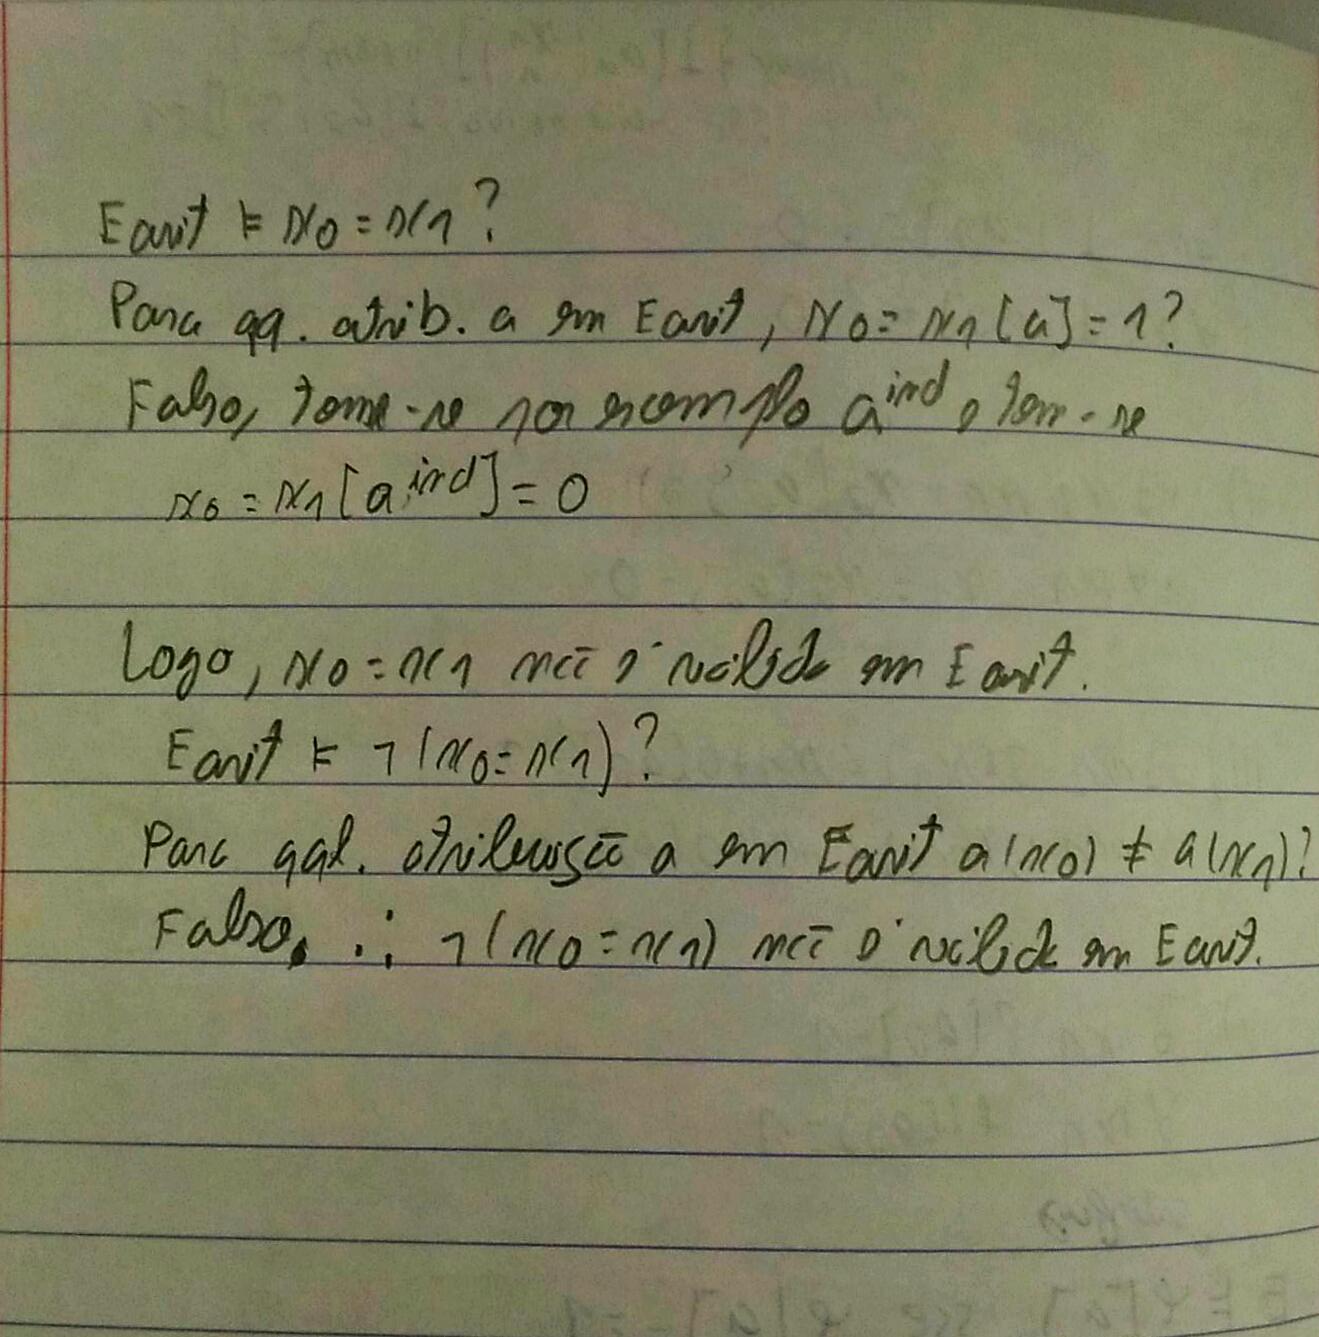 Earit ⊨ x0 = x1?
Para qq. atrib. a em Earit, x0 = x1 [a] = 1?
Falso, tome-se por exemplo a^ind, tem-se
x0 = x1 [a^ind] = 0
Logo, x0 = x1 não é válida em Earit.
Earit ⊨ ¬(x0 = x1)?
Para qql. atribuição a em Earit a(x0) ≠ a(x1)?
Falso. ∴ ¬(x0 = x1) não é válida em Earit.